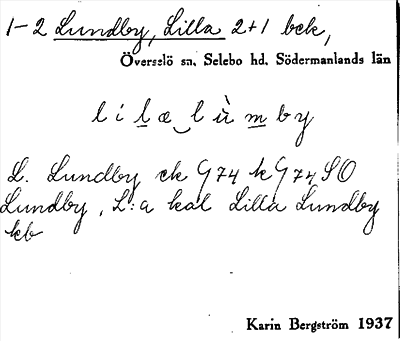 1-2 Lundby, Lilla 2+1 bck,
Överselö sn, Selebo hd, Södermanlands län
l i l æ l ù m b y
L. Lundby ek G74 k G74 SO
Lundby, L:a kal Lilla Lundby
kb
Karin Bergström 1937